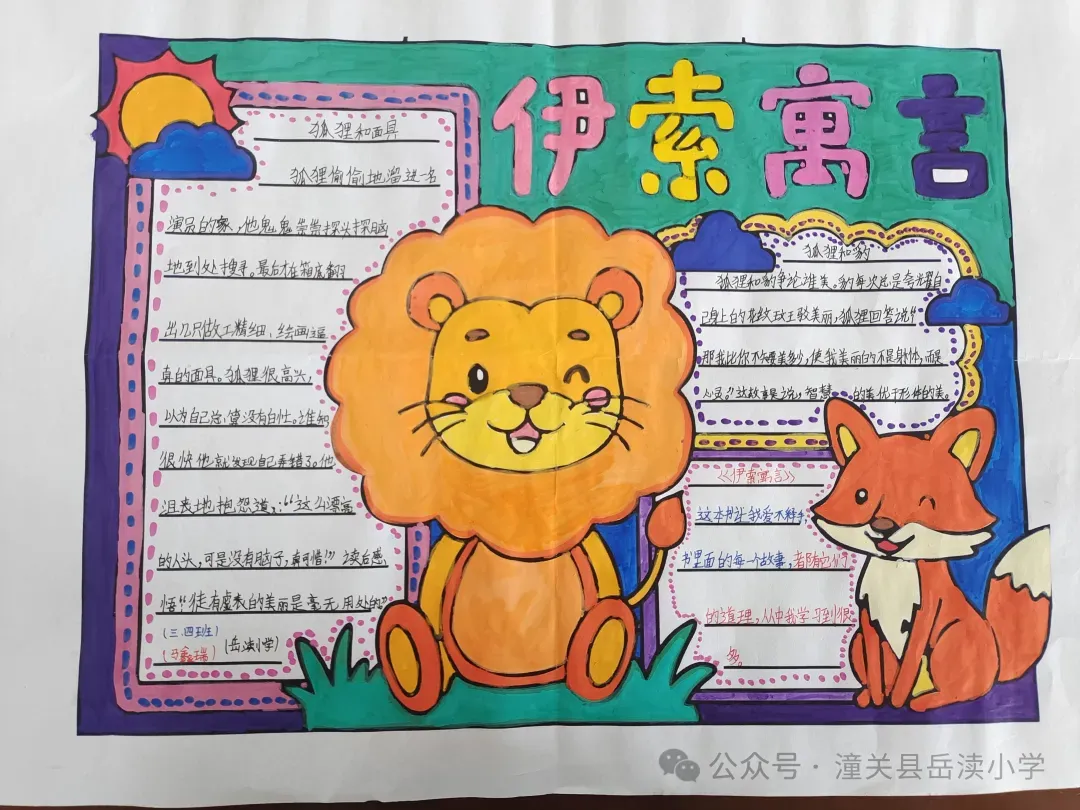 伊索寓言
狐狸和面具
狐狸偷偷地溜进一名
演员的家,他鬼鬼祟祟探头探脑
地到处搜寻,最后才在箱底翻
出几只做工精细,绘画逼
真的面具。狐狸很高兴,
以为自己总算没有白忙。谁知
很快他就发现自己弄错了。他
沮丧地抱怨道,:“这么漂亮
的人头,可是没有脑子,真可惜!”读后感
悟“徒有虚表的美丽是毫无用处的”
(三.四班)
(马鑫瑞) (岳渎小学)
狐狸和豹
狐狸和豹争论谁美。豹每次总是夸耀自
己身上的花纹
美丽,狐狸回答说:“
那我比你
美
,使我美丽的不是躯体,而是
心灵。”这故事是说,智慧 的美优于形体的美。
《伊索寓言》
这本书让我爱不释手,
书里面的每一个故事,都有它们
的道理,从中我学习到很
多。
公众号·潼关县岳渎小学